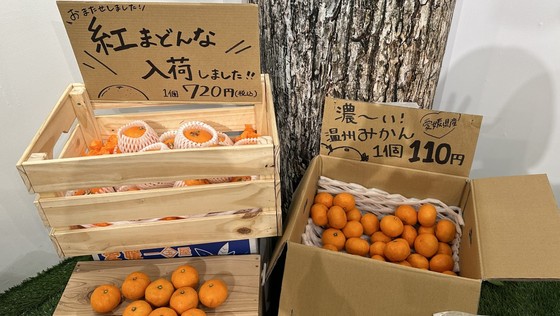 おまたせしました!
紅まどんな
入荷しました!!
1個 720円(税込)
濃〜い!
愛媛県産
温州みかん
1個 110円